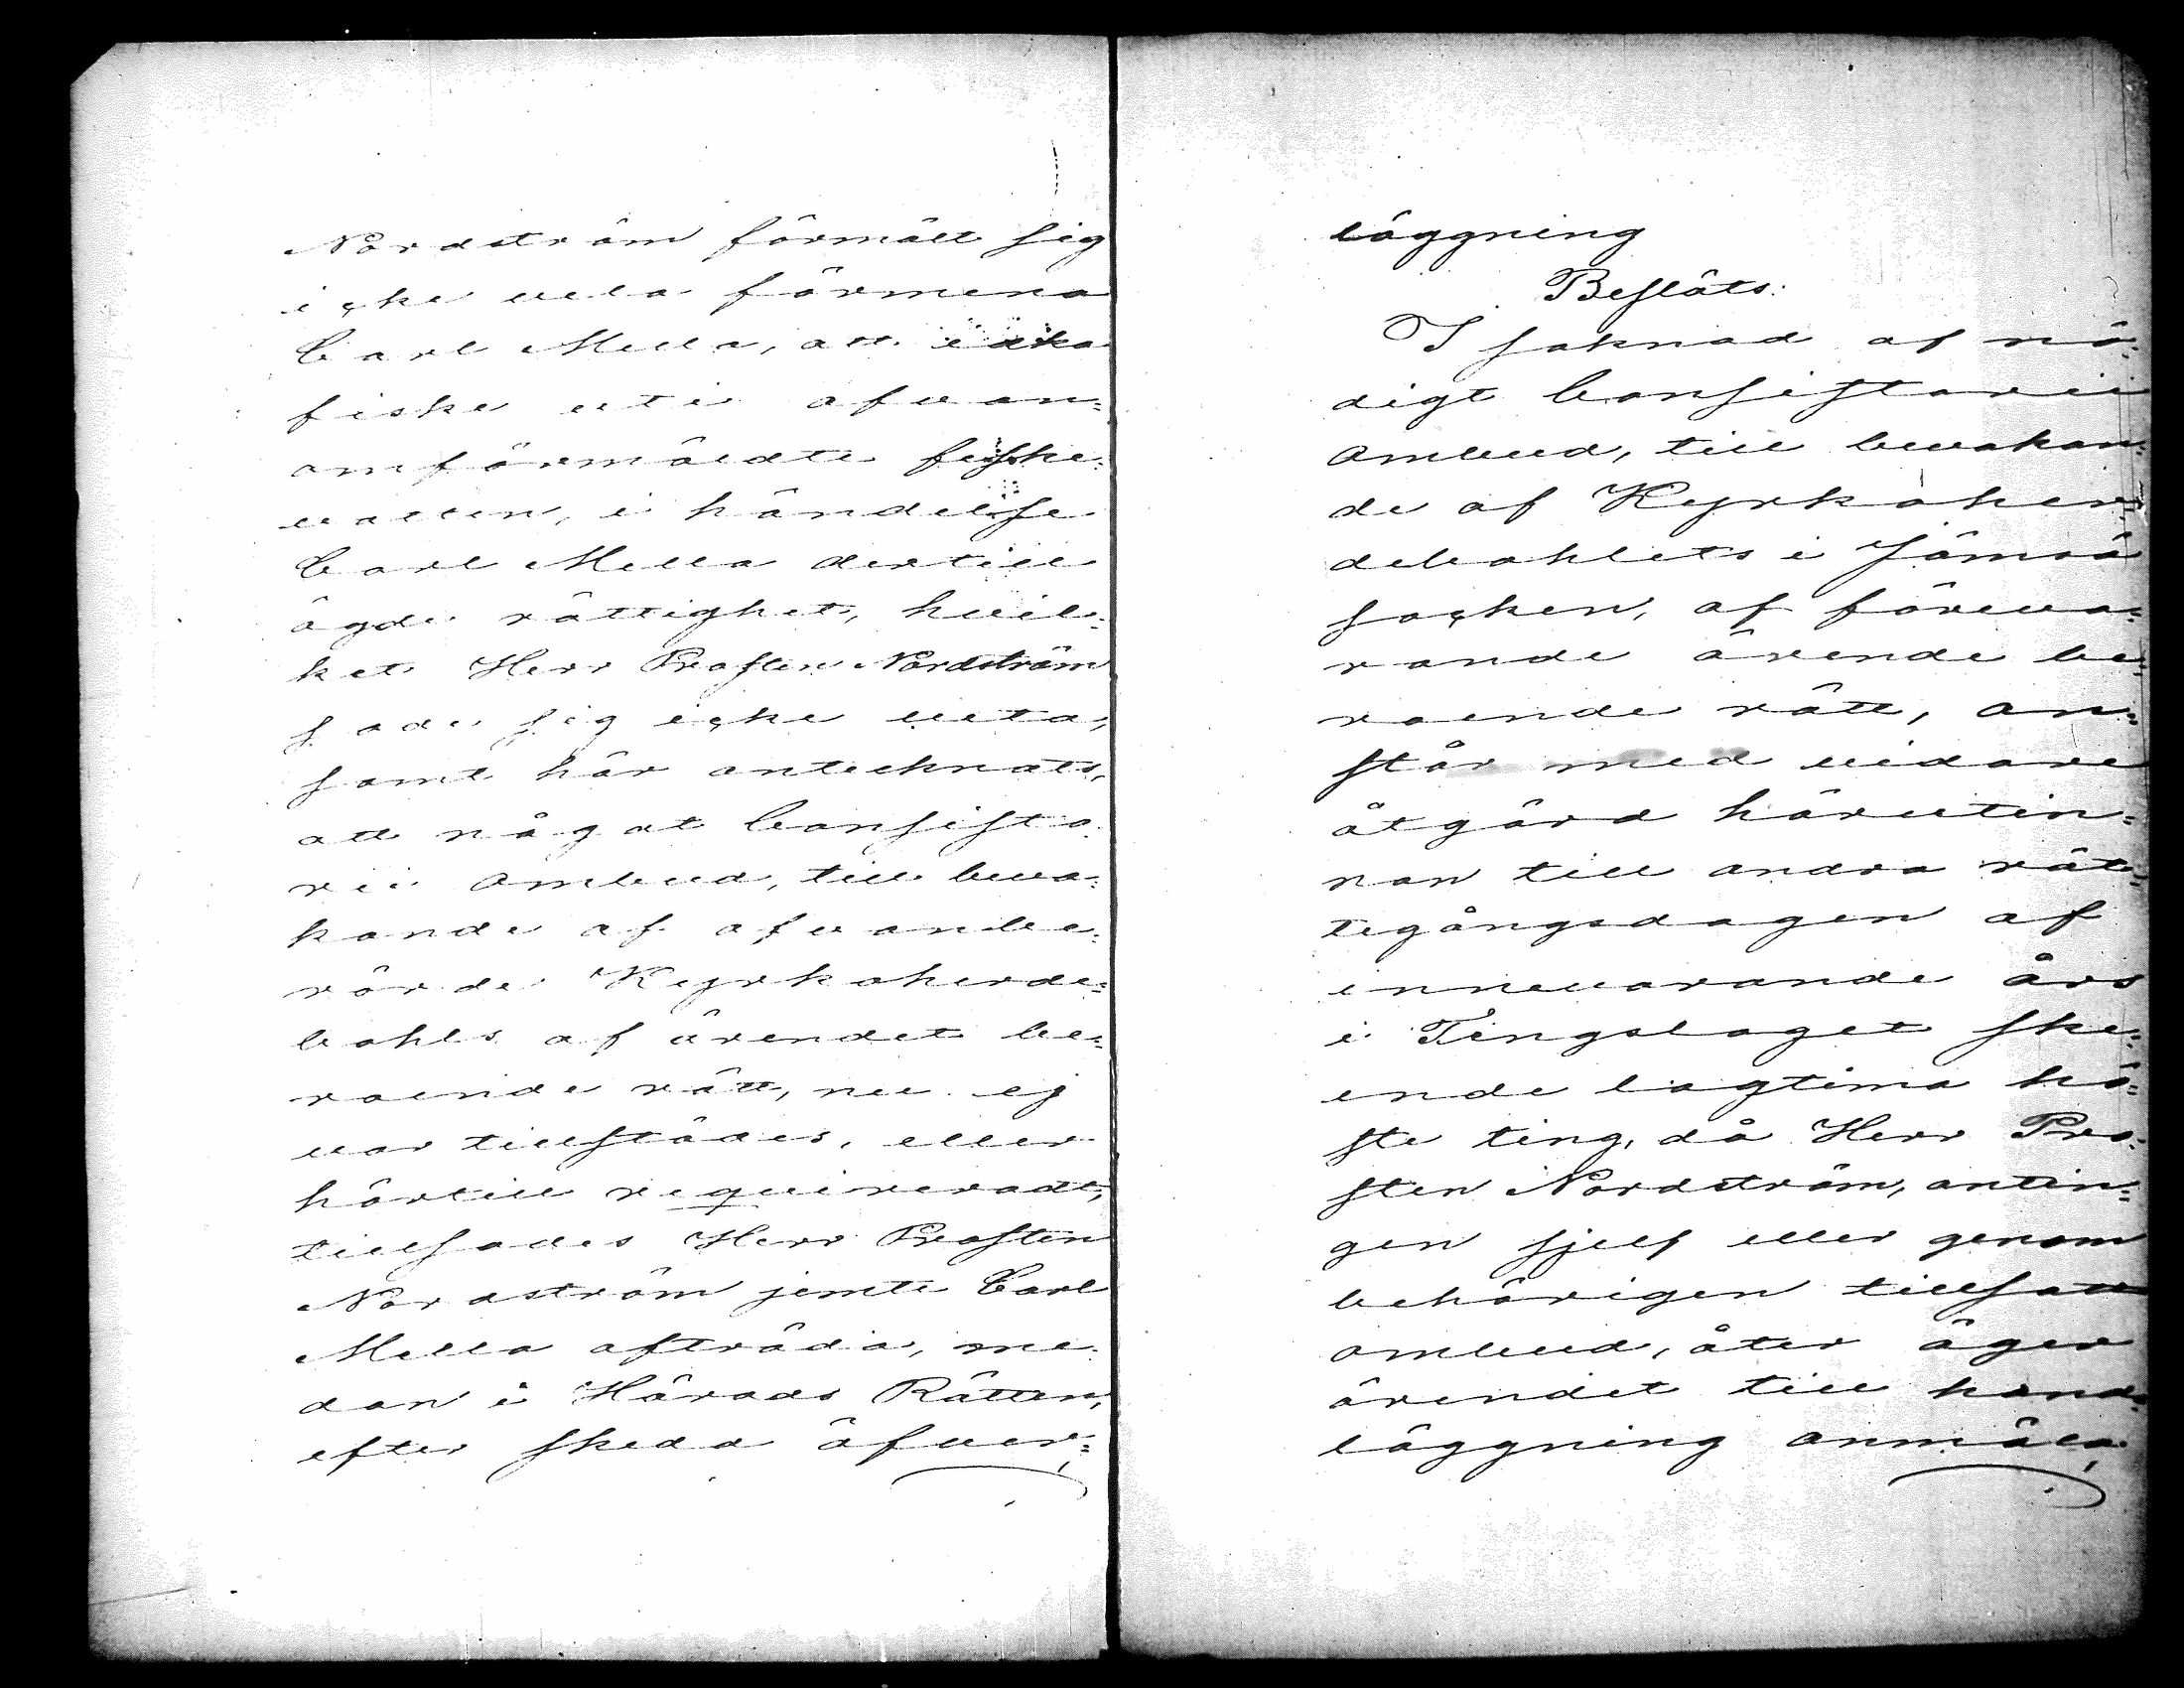 Nordström förmält sig
icke vela förmena
Carl Mella, att idka
fiske uti ofvan=
omförmäldte fiske=
vatten, i händelse
Carl Mella dertill
ägde rättighet, hvil=
ket Herr Prosten Nordström
sade sig icke veta,
samt här antecknats,
att något Consisto
rii Ombud, till beva=
kande af ofvanbe=
rörde Kyrkoherde=
bohls af ärendet be=
roende rätt, nu ej
var tillstädes, eller
härtill requireradt,
tillsades Herr Prosten
Nordström jemte Carl
Mella afträda, me=
dan i Härads Rätten,
efter skedd öfver=
läggning
Beslöts:
I saknad af nö=
digt Consistorii
Ombud, till bevakan=
de af Kyrkoher=
debohlets i Jämsä
socken, af föreva=
rande ärende be=
roende rätt, an=
står med vidare
åtgärd härutin=
nan till andra rät=
tegångsdagen af
innevarande års
i Tingslaget ske=
ende lagtima hö=
ste ting, då Herr Pro=
sten Nordström, antin=
gen sjelf eller genom
behörigen tillsatt
ombud, åter äger
ärendet till hand=
läggning anmäla,